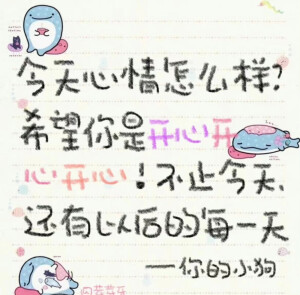 今天心情怎么样?
希望你是开心开
心开心!不止今天、
还有以后的每一天
——你的小狗